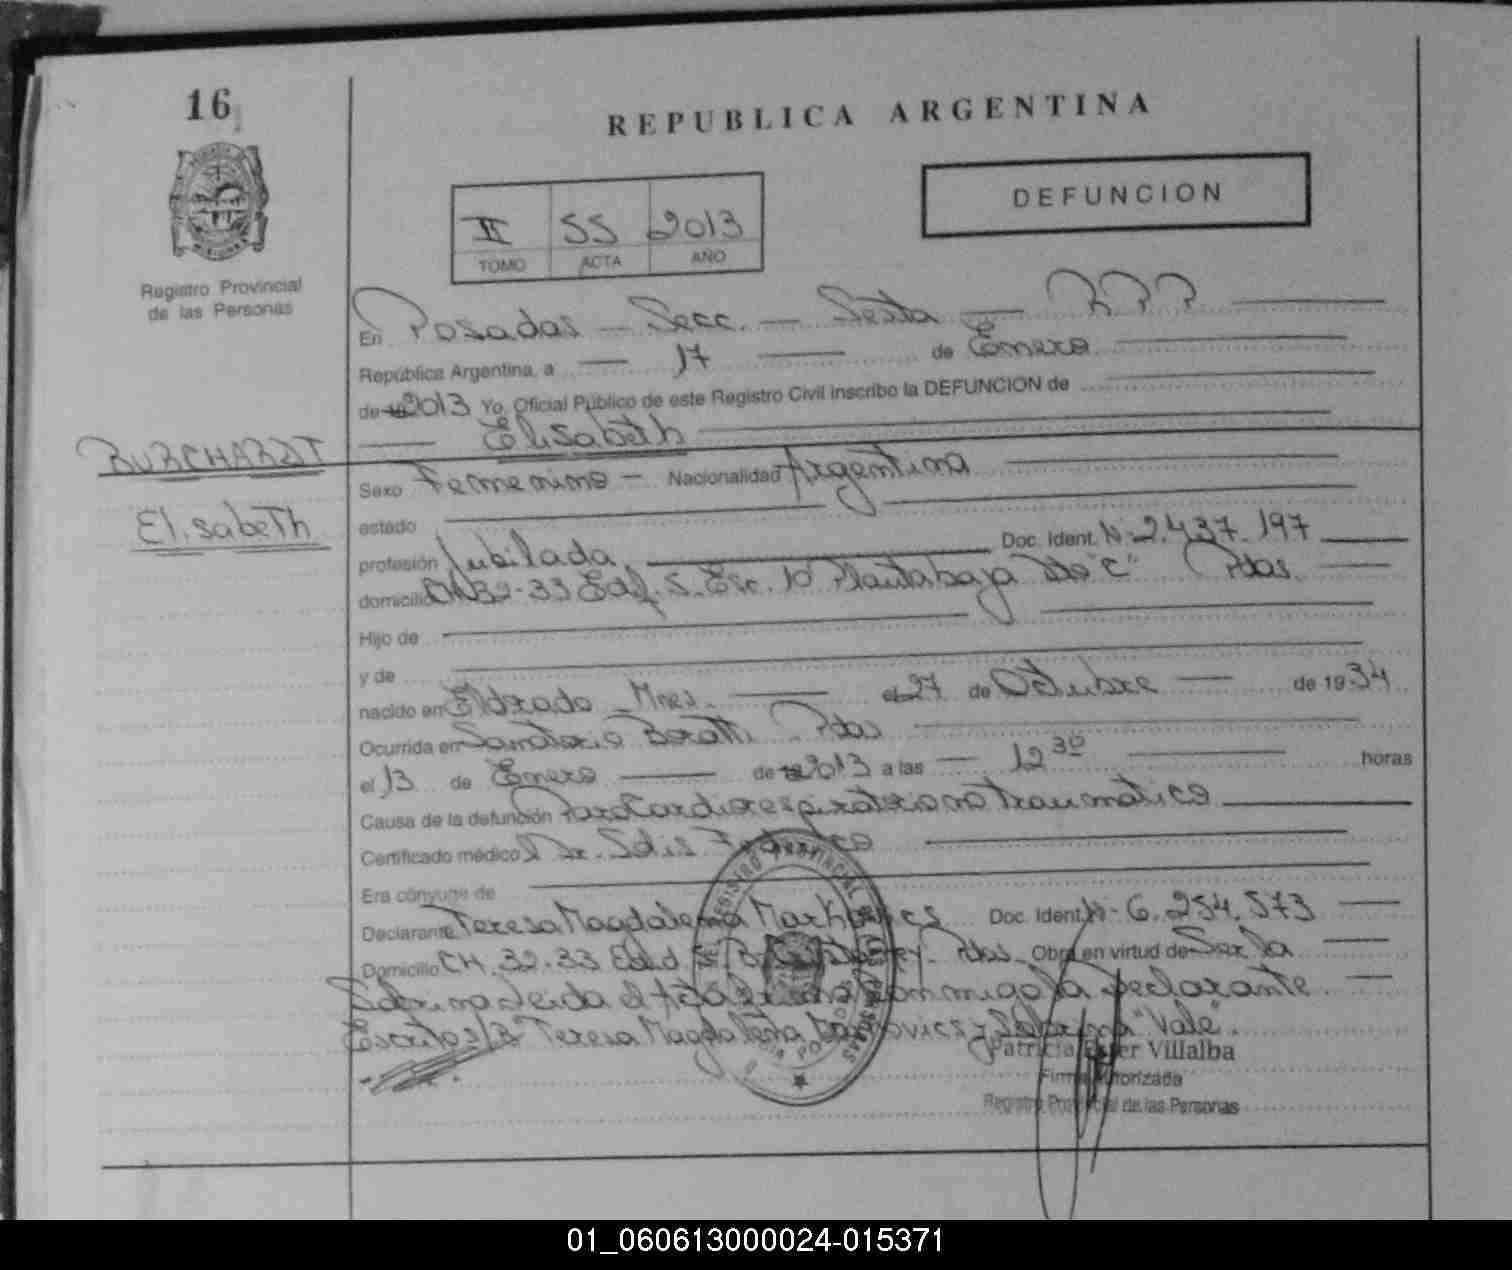 16
REPUBLICA ARGENTINA
DEFUNCION
II 55 2013
TOMO ACTA AÑO
Registro Provincial
de las Personas
En Posadas - Secc. - Sexta - R P P
República Argentina, a 17 de Enero
de 2013 Yo, Oficial Público de este Registro Civil inscribo la DEFUNCION de
Elisabeth
BURCHARDT
Elisabeth
Sexo Femenino - Nacionalidad Argentina
estado
profesión Jubilada Doc. Ident. Nº 2.437.197
domicilio CH 32-33 Edif. 5. Esc. 10 Planta baja Dto "C" Pdas.
Hijo de
y de
nacido en Eldorado Mnes. el 27 de Octubre de 1934
Ocurrida en Sanatorio Boratti Pdas
el 13 de Enero de 2013 a las 12 30 horas
Causa de la defunción Paro Cardiorespiratorio no traumático
Certificado médico Dr. Solis
Era cónyuge de
Declarante Teresa Magdalena Doc. Ident. Nº 6.254.573
Domicilio CH. 32-33 Pdas Obra en virtud de Ser la
Sobrina Leida el Acta conmigo la Declarante
Teresa Magdalena Sobrina "Vale".
Patricia Villalba
Firma Autorizada
Registro Provincial de las Personas
REGISTRO PROVINCIAL DE LAS PERSONAS
01_060613000024-015371